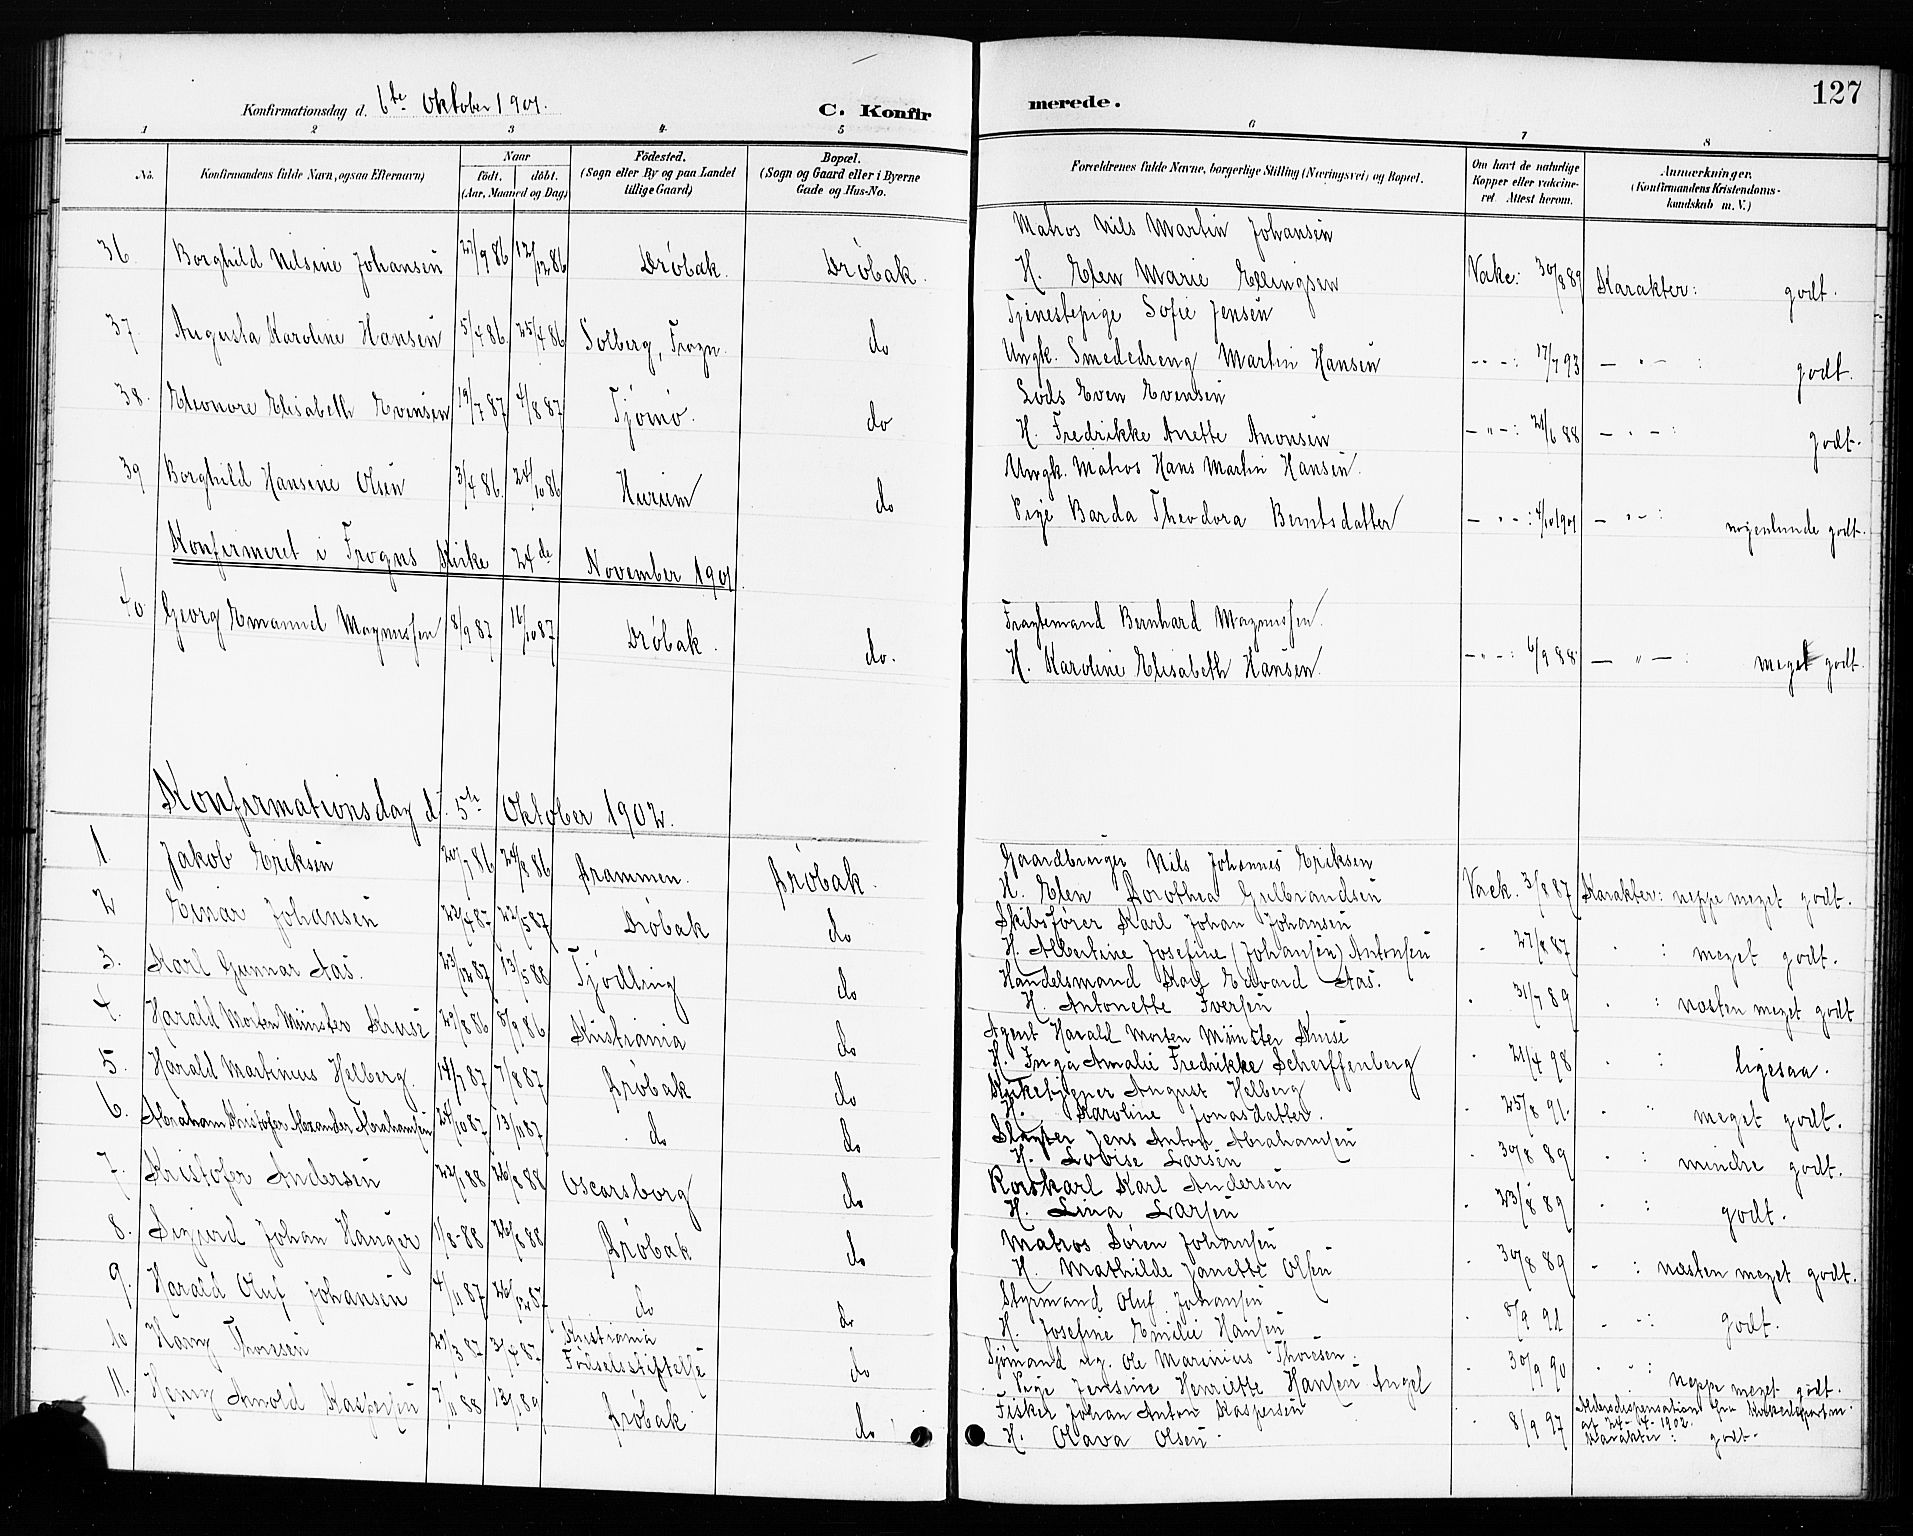 127
Konfirmationsdag d. 6te Oktober 1901.
C. Konfirmerede.
1 2 3 4 5 6 7 8
No.
Konfirmandens fulde Navn, ogsaa Efternavn)
Naar
födt. döbt.
(Aar, Maaned og Dag)
Födested.
(Sogn eller By og paa Landet tillige Gaard)
Bopæl.
(Sogn og Gaard eller i Byerne Gade og Hus-No.
Forældrenes fulde Navne, borgerlige Stilling (Næringsvei) og Bopæl.
Om havt de naturlige Kopper eller vakcineret. Attest herom.
Anmærkninger.
(Konfirmandens Kristendomskundskab m. V.)
36. Borghild Nilsine Johansen 27/9 86 12/12 86 Drøbak. Drøbak. Matros Nils Martin Johansen
H. Elen Marie Ellingsen Vakc: 30/8 89 Karakter: godt.
37. Augusta Karoline Hansen 5/4 86. 25/4 86 Solberg, Frogn. do Tjenestepige Sofie Jensen
Ungk. Smededreng Martin Hansen - " - : 17/7 93 - " - : godt.
38. Eleonore Elisabeth Evensen 19/7 87 4/8 87 Tjømø. do Lods Even Evensen
H. Fredrikke Anette Anonsen - " - : 21/6 88 - " - : godt.
39 Borghild Hansine Olsen 3/4 86. 24/10 86 Hurum do Ungk. Matros Hans Martin Hansen.
Pige Barda Theodora Berntsdatter - " - : 4/10 1901 - " - : nogenlunde godt.
Konfirmeret i Frogns Kirke 24de November 1901
40 Georg Emanuel Magnussen 8/9 87 16/10 87 Drøbak. do. Fragtemand Bernhard Magnussen.
H. Karoline Elisabeth Hansen. - " - : 6/9 88 - " - : meget godt.
Konfirmationsdag d. 5te Oktober 1902.
1 Jakob Eriksen 20/7 86 24/8 86 Drammen. Drøbak. Gaardbruger Nils Johannes Eriksen
H. Elen Dorothea Gulbrandsen Vack. 3/8 87 Karakter: neppe meget godt.
2 Einar Johansen 22/4 87 22/5 87 Drøbak do Skibsfører Karl Johan Johansen
H. Albertine Josefine (Johansen) Antonsen - 27/8 87 : meget godt.
3. Karl Gunnar Aas. 23/12 87 13/5 88 Tjødling do Handelsmand Karl Edvard Aas.
H. Antonette Iversen - 31/7 89 - : næsten meget godt
4. Harald Morten Münster Kruse 29/8 86 8/9 86 Kristiania do Agent Harald Morten Münster Kruse
H. Inga Amalie Fredrikke Scherffenberg - 21/4 98 - : ligesaa.
5. Harald Martinius Helberg. 14/7 87 7/8 87 Drøbak do Kirketjener August Helberg
H. Karoline Jonasdatter. - 25/8 91. - " meget godt.
6. Abraham Kristofer Alexander Abrahamsen 24/10 87 13/11 87 do do Slagter Jens Anton Abrahamsen
H. Lovise Larsen - 30/8 89 - : mindre godt.
7. Kristofer Andersen 22/1 88 26/8 88 Oscarsborg do Rorskarl Karl Andersen
H. Lina Larsen - 23/8 89 - : godt.
8. Sigurd Johan Hanger 1/8-88 26/8 88 Drøbak do Matros Søren Johansen
H. Mathilde Janette Olsen - 30/8 89 - : næsten meget godt.
9. Harald Oluf Johansen 4/11 87 26/12 87 do do Styrmand Oluf Johansen
H. Josefine Emilie Hansen - 8/9 91 - - : godt.
10 Harry Thoresen 29/3 87 3/4 87 Kristiania Fødselsstiftelse do Sjømand ug. Ole Marinius Thoresen.
Pige Jensine Henriette Hansen Angel - 30/9 90 - - : neppe meget godt.
11. Henry Arnold Kaspersen 7/11 88 13/1 89 Drøbak do Fisker Johan Anton Kaspersen
H. Olava Olsen. - 8/9 97 Aldersdispensation fra Kirkedepartm.
af 24-4-1902.
Karakter: godt.